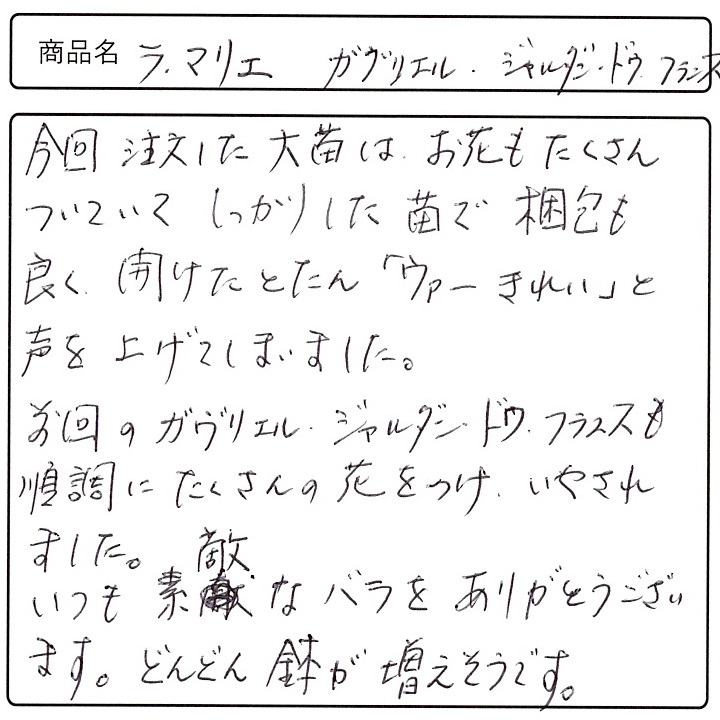 商品名 ラ・マリエ ガヴリエル・ジャルダン・ドゥ・フランス
今回 注文した 大苗は、お花も たくさん
ついていて しっかりした 苗で 梱包も
良く、開けたとたん「ヴァー きれい」と
声を 上げてしまいました。
前回の ガヴリエル・ジャルダン・ドゥ・フランスも
順調に たくさんの 花をつけ、いやされ
ました。 敵
いつも 素敵な バラを ありがとうござい
ます。どんどん 鉢が 増えそうです。